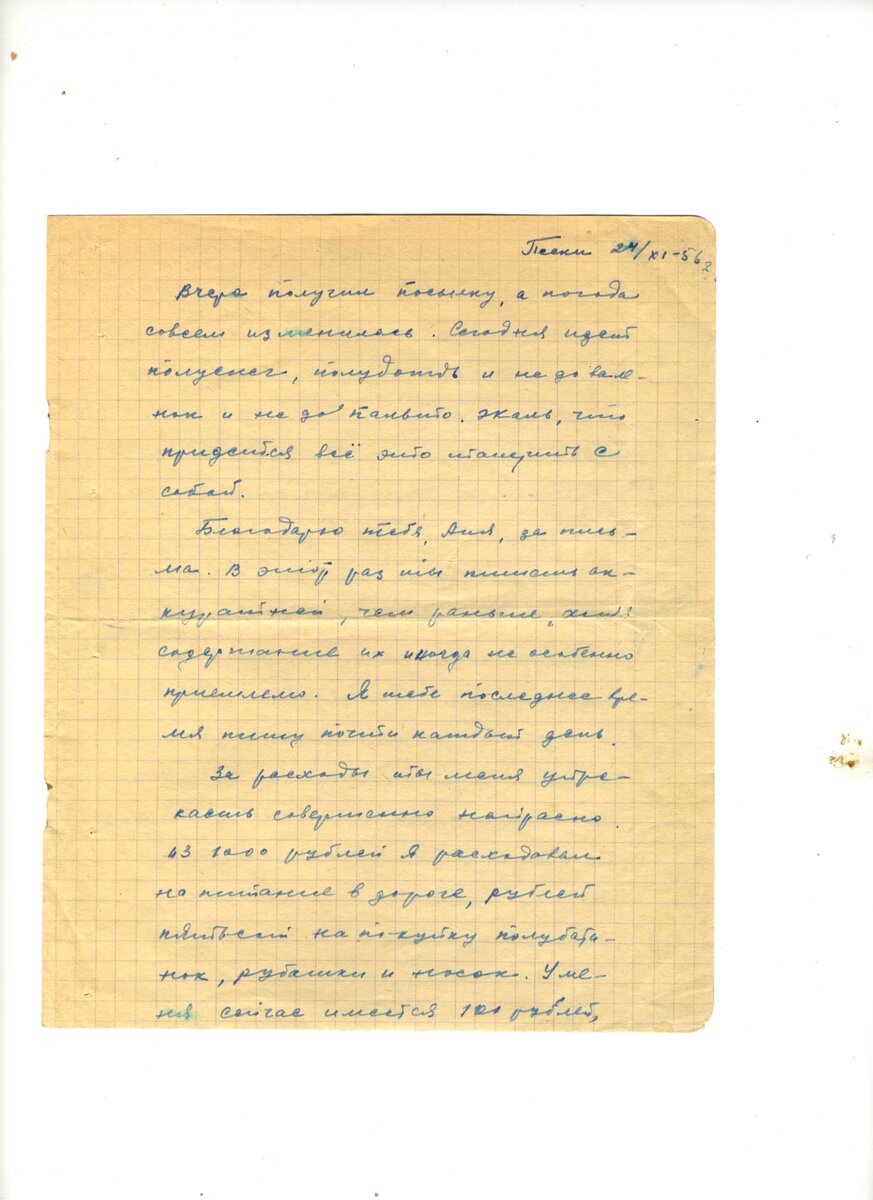 Пески 24/XI-56г
Вчера получил посылку, а погода
совсем изменилась. Сегодня идет
полуснег, полудождь и не до вале-
нок и не до пальто. Жаль, что
придется всё это тащить с
собой.
Благодарю тебя, Аня, за пись-
ма. В этот раз ты пишешь ак-
куратней, чем раньше, хотя
содержание их иногда не особенно
приемлемо. Я тебе последнее вре-
мя пишу почти каждый день.
За расходы ты меня упре-
каешь совершенно напрасно.
Из 1000 рублей я расходовал
на питание в дороге, рублей
пятьсот на покупку полубати-
нок, рубашки и носок. У ме-
ня сейчас имеется 100 рублей,